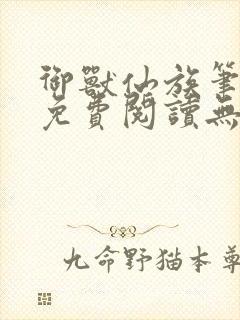 御獸仙族筆
免費閱讀無
九命野猫本尊